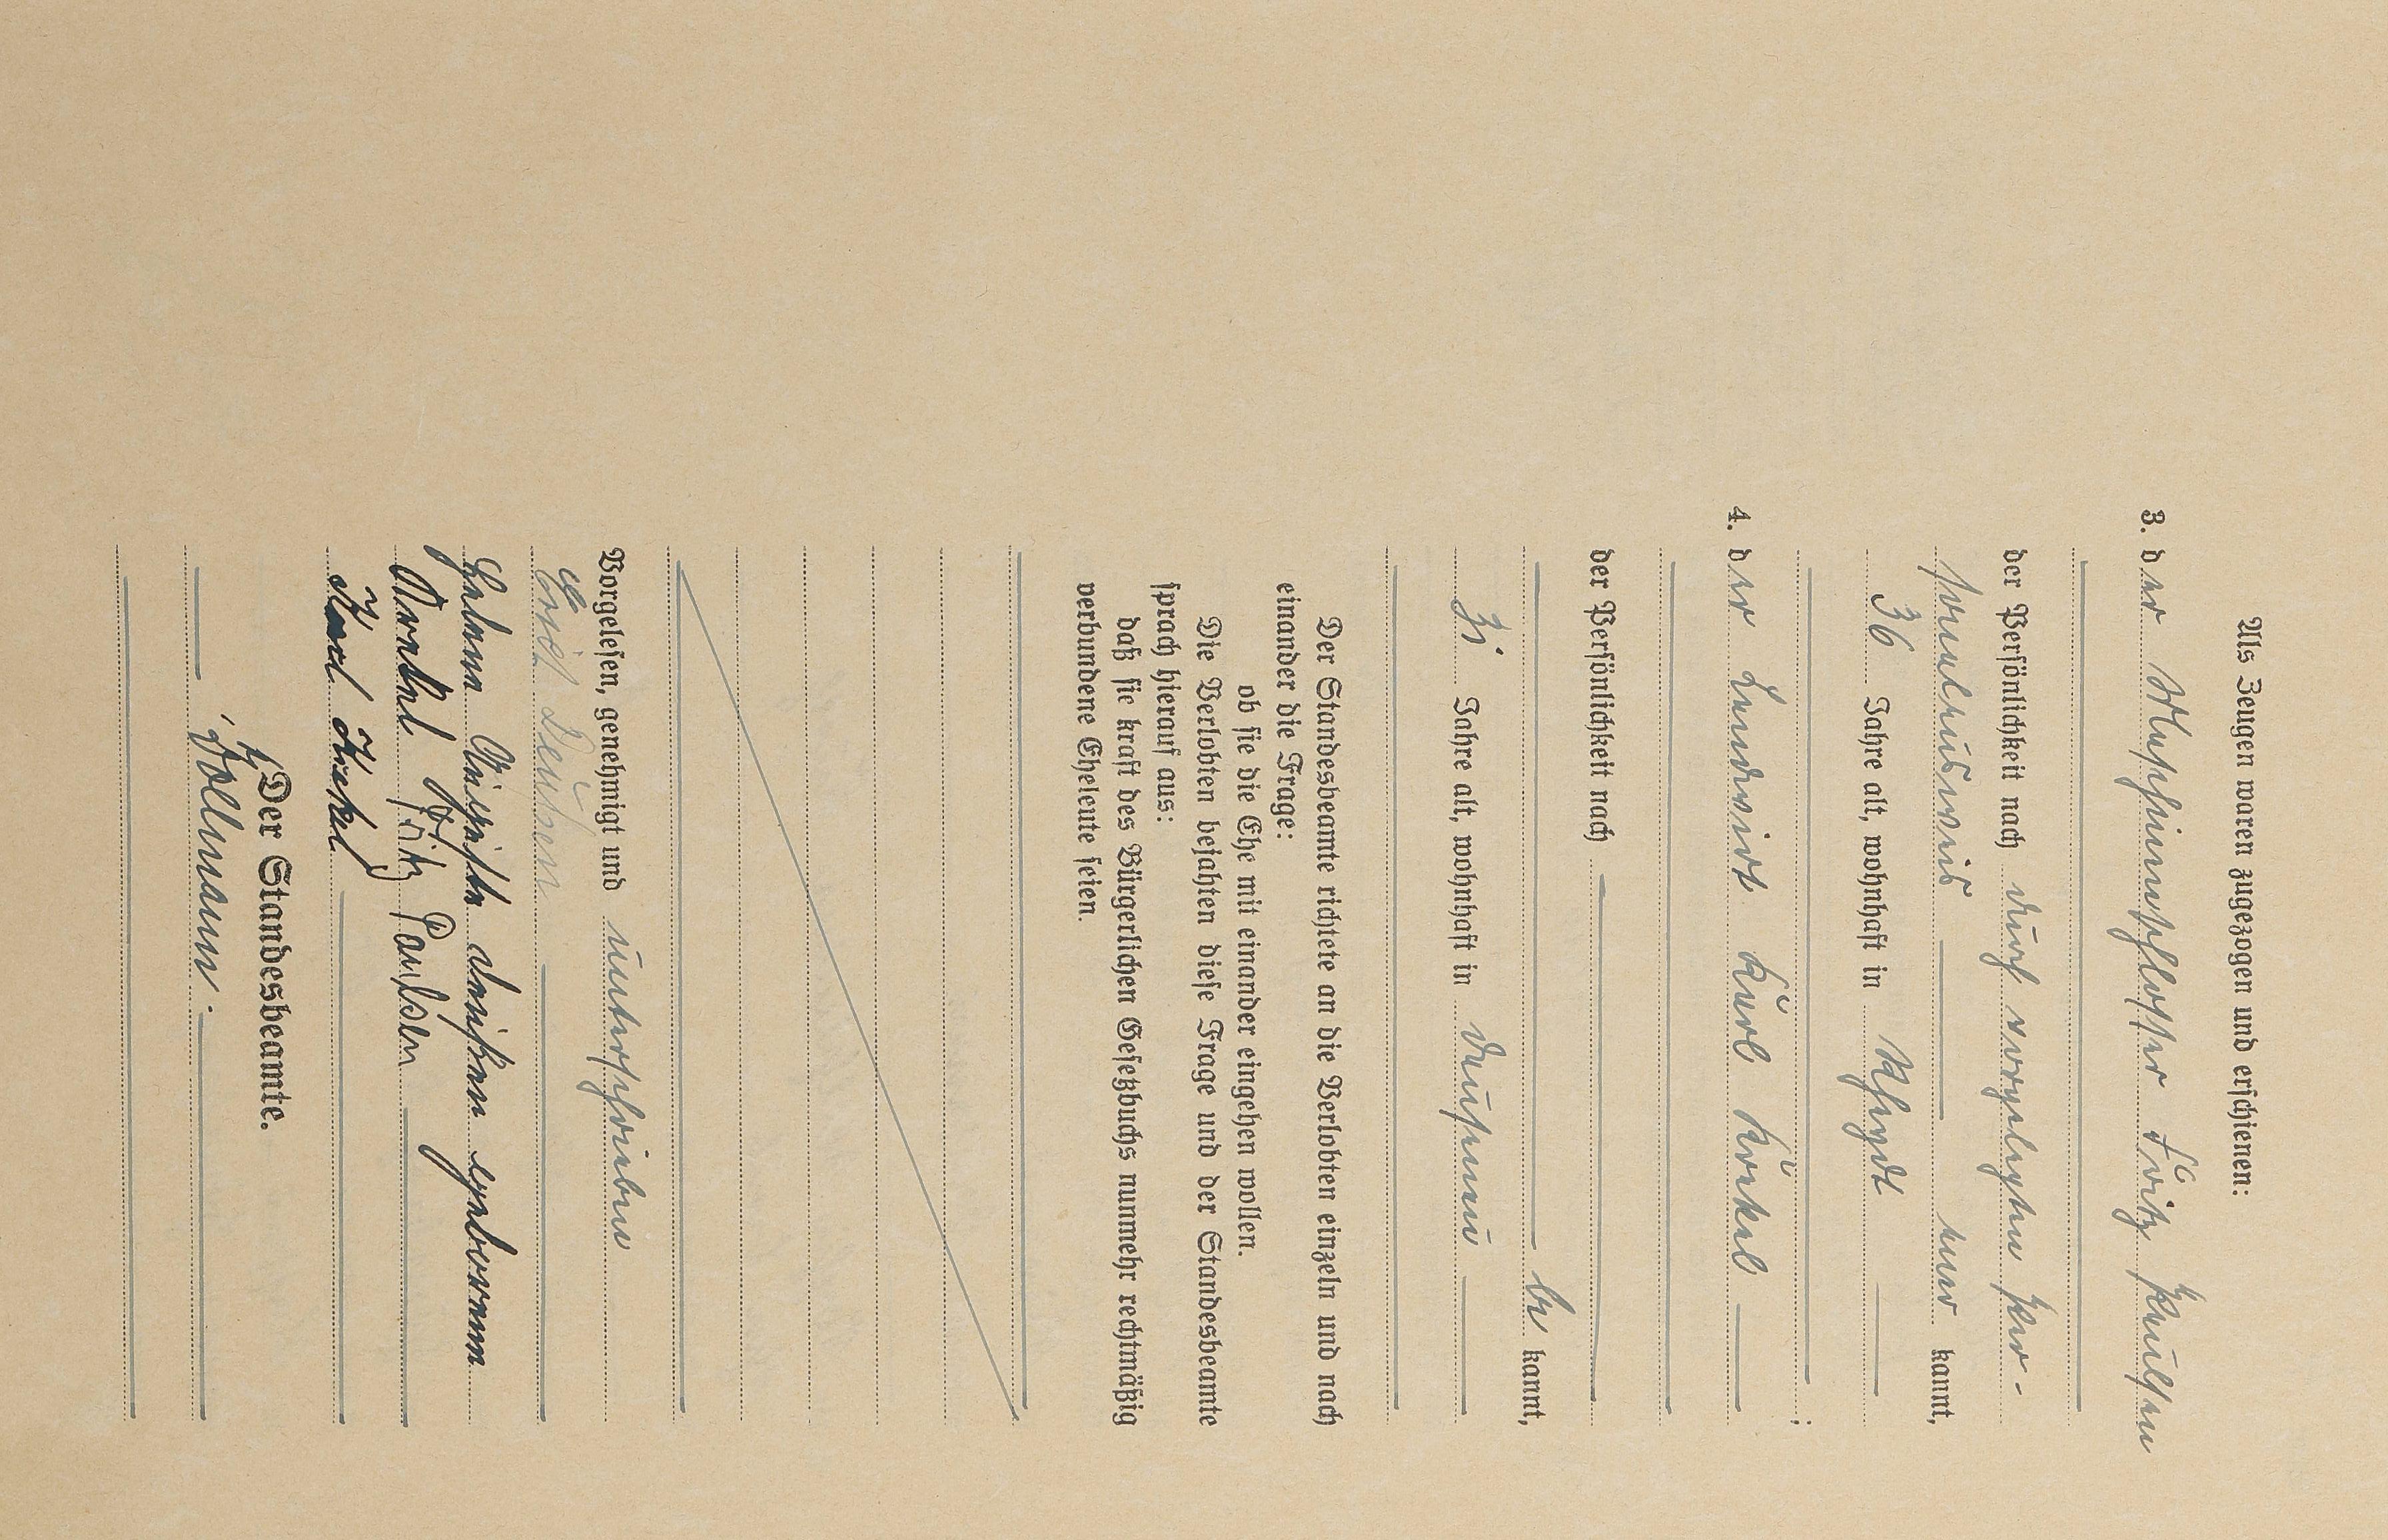 Als Zeugen waren zugezogen und erschienen:
3. der Maschinenschlosser Fritz Paulsen
der Persönlichkeit nach durch vorgelegten Per-
sonalausweis aner kannt,
36 Jahre alt, wohnhaft in Rheydt
;
4. der Landwirt Karl Krekel
der Persönlichkeit nach
be kannt,
Jahre alt, wohnhaft in
Der Standesbeamte richtete an die Verlobten einzeln und nach
einander die Frage:
ob sie die Ehe mit einander eingehen wollen.
Die Verlobten bejahten diese Frage und der Standesbeamte
sprach hierauf aus:
daß sie kraft des Bürgerlichen Gesetzbuchs nunmehr rechtmäßig
verbundene Eheleute seien.
Vorgelesen, genehmigt und unterschrieben
Helene geborenen
Krekel Fritz Paulsen
Karl Krekel
Der Standesbeamte.
Vollmann.